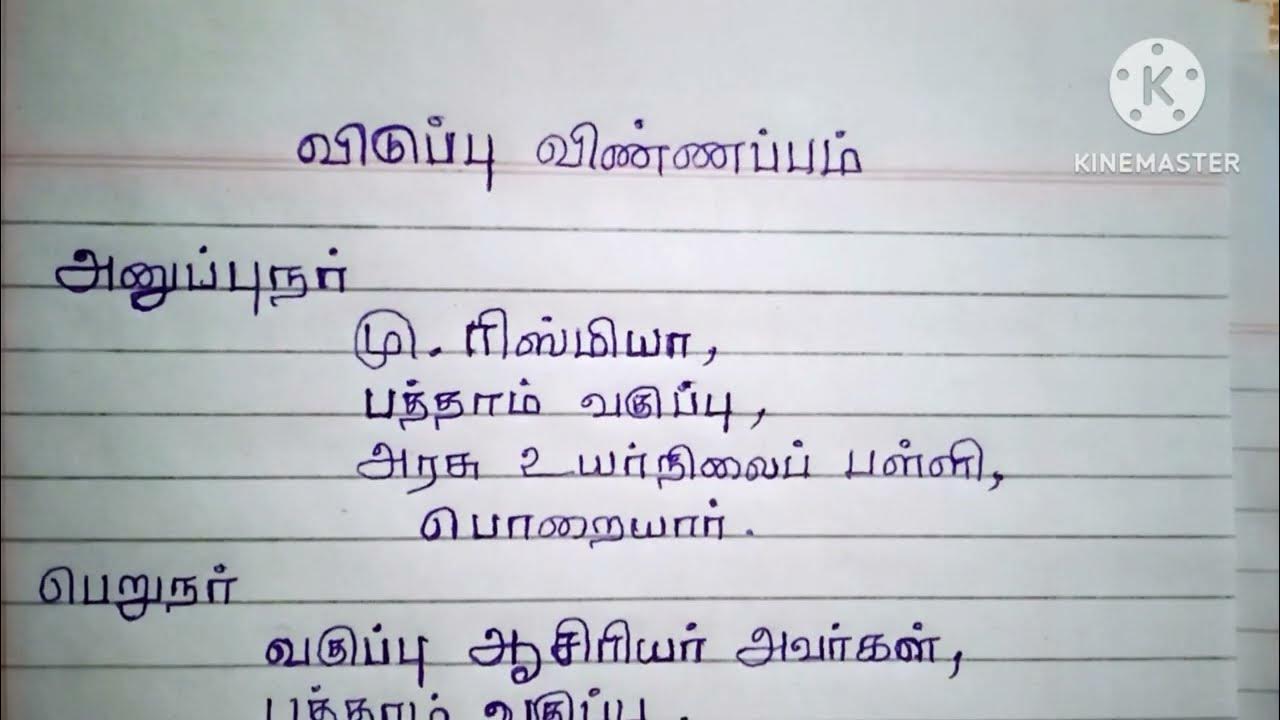 விடுப்பு விண்ணப்பம்
KINEMASTER
அனுப்புநர்
மு. ரிஸ்மியா,
பத்தாம் வகுப்பு,
அரசு உயர்நிலைப் பள்ளி,
பொறையார்.
பெறுநர்
வகுப்பு ஆசிரியர் அவர்கள்,
பத்தாம் வகுப்பு,